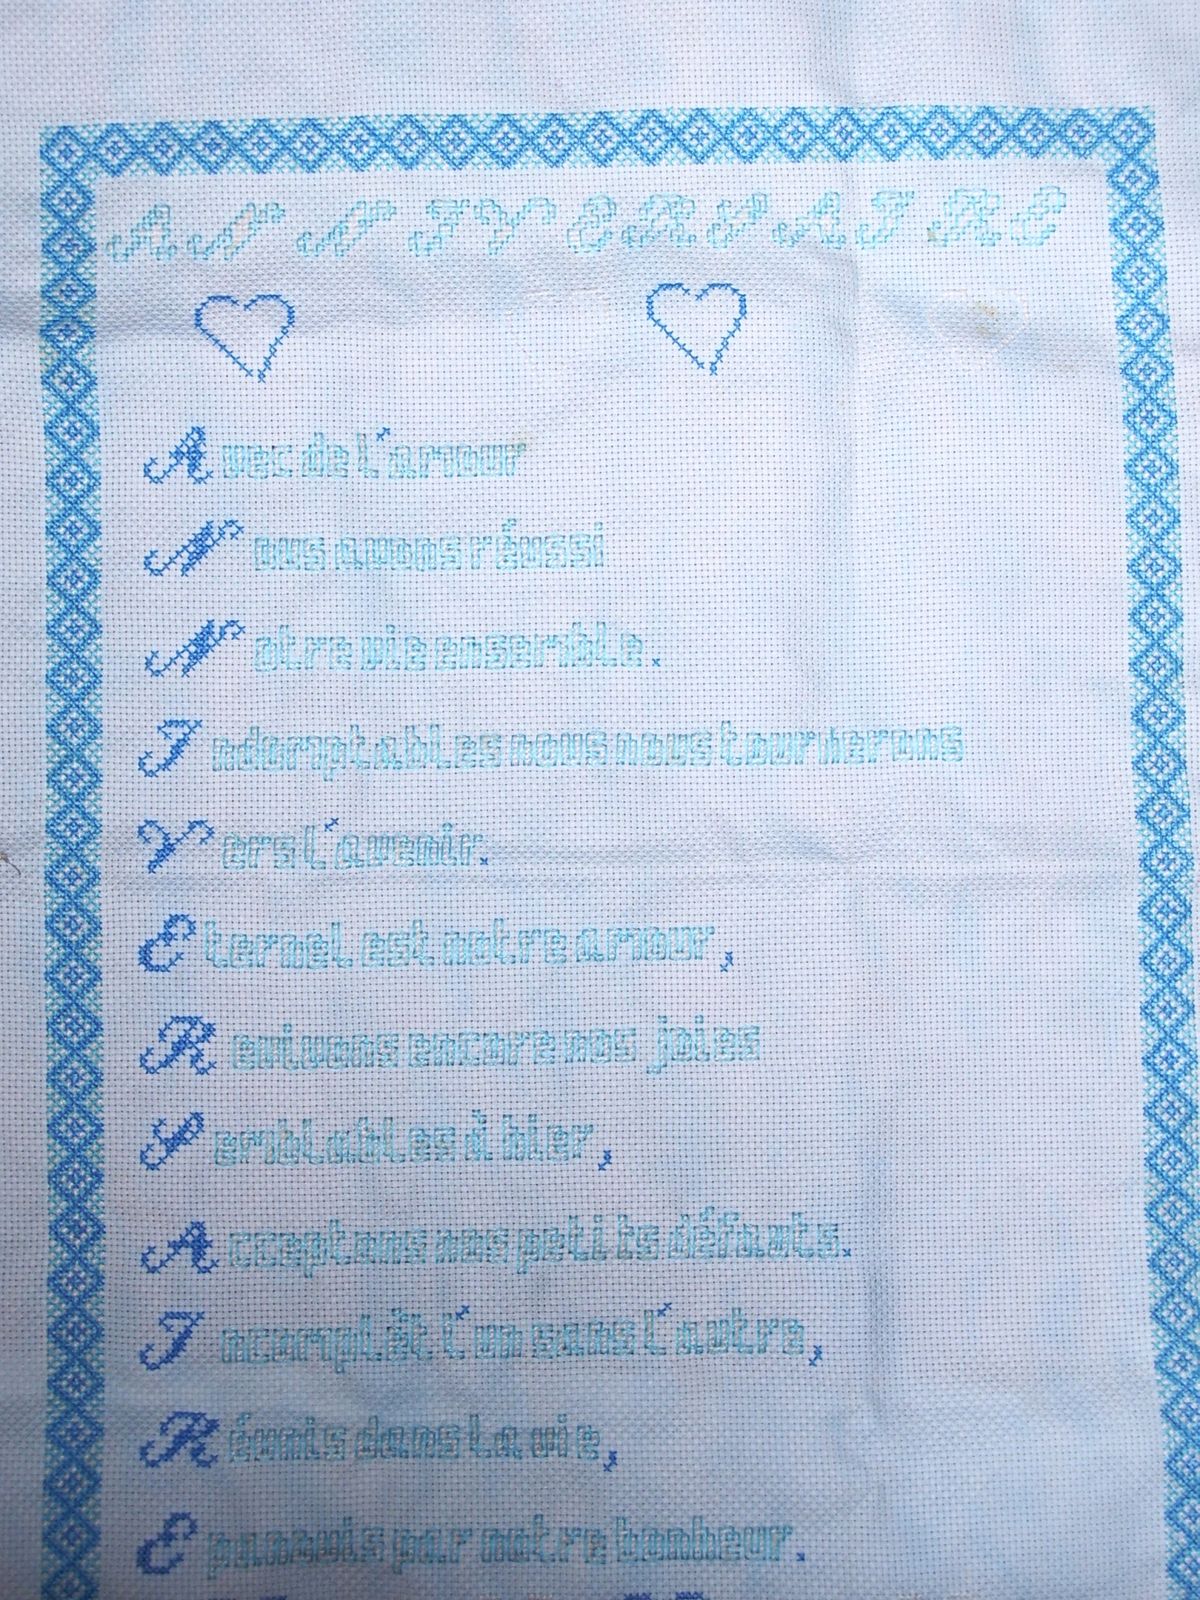 ANNIVERSAIRE
Avec de l'amour
Nous avons réussi
Notre vie ensemble.
Indomptables nous nous tournerons
Vers l'avenir.
Eternel est notre amour,
Revivons encore nos joies
Semblables à hier,
Acceptons nos petits défauts.
Incomplèt l'un sans l'autre,
Réunis dans la vie,
Epanouis par notre bonheur.